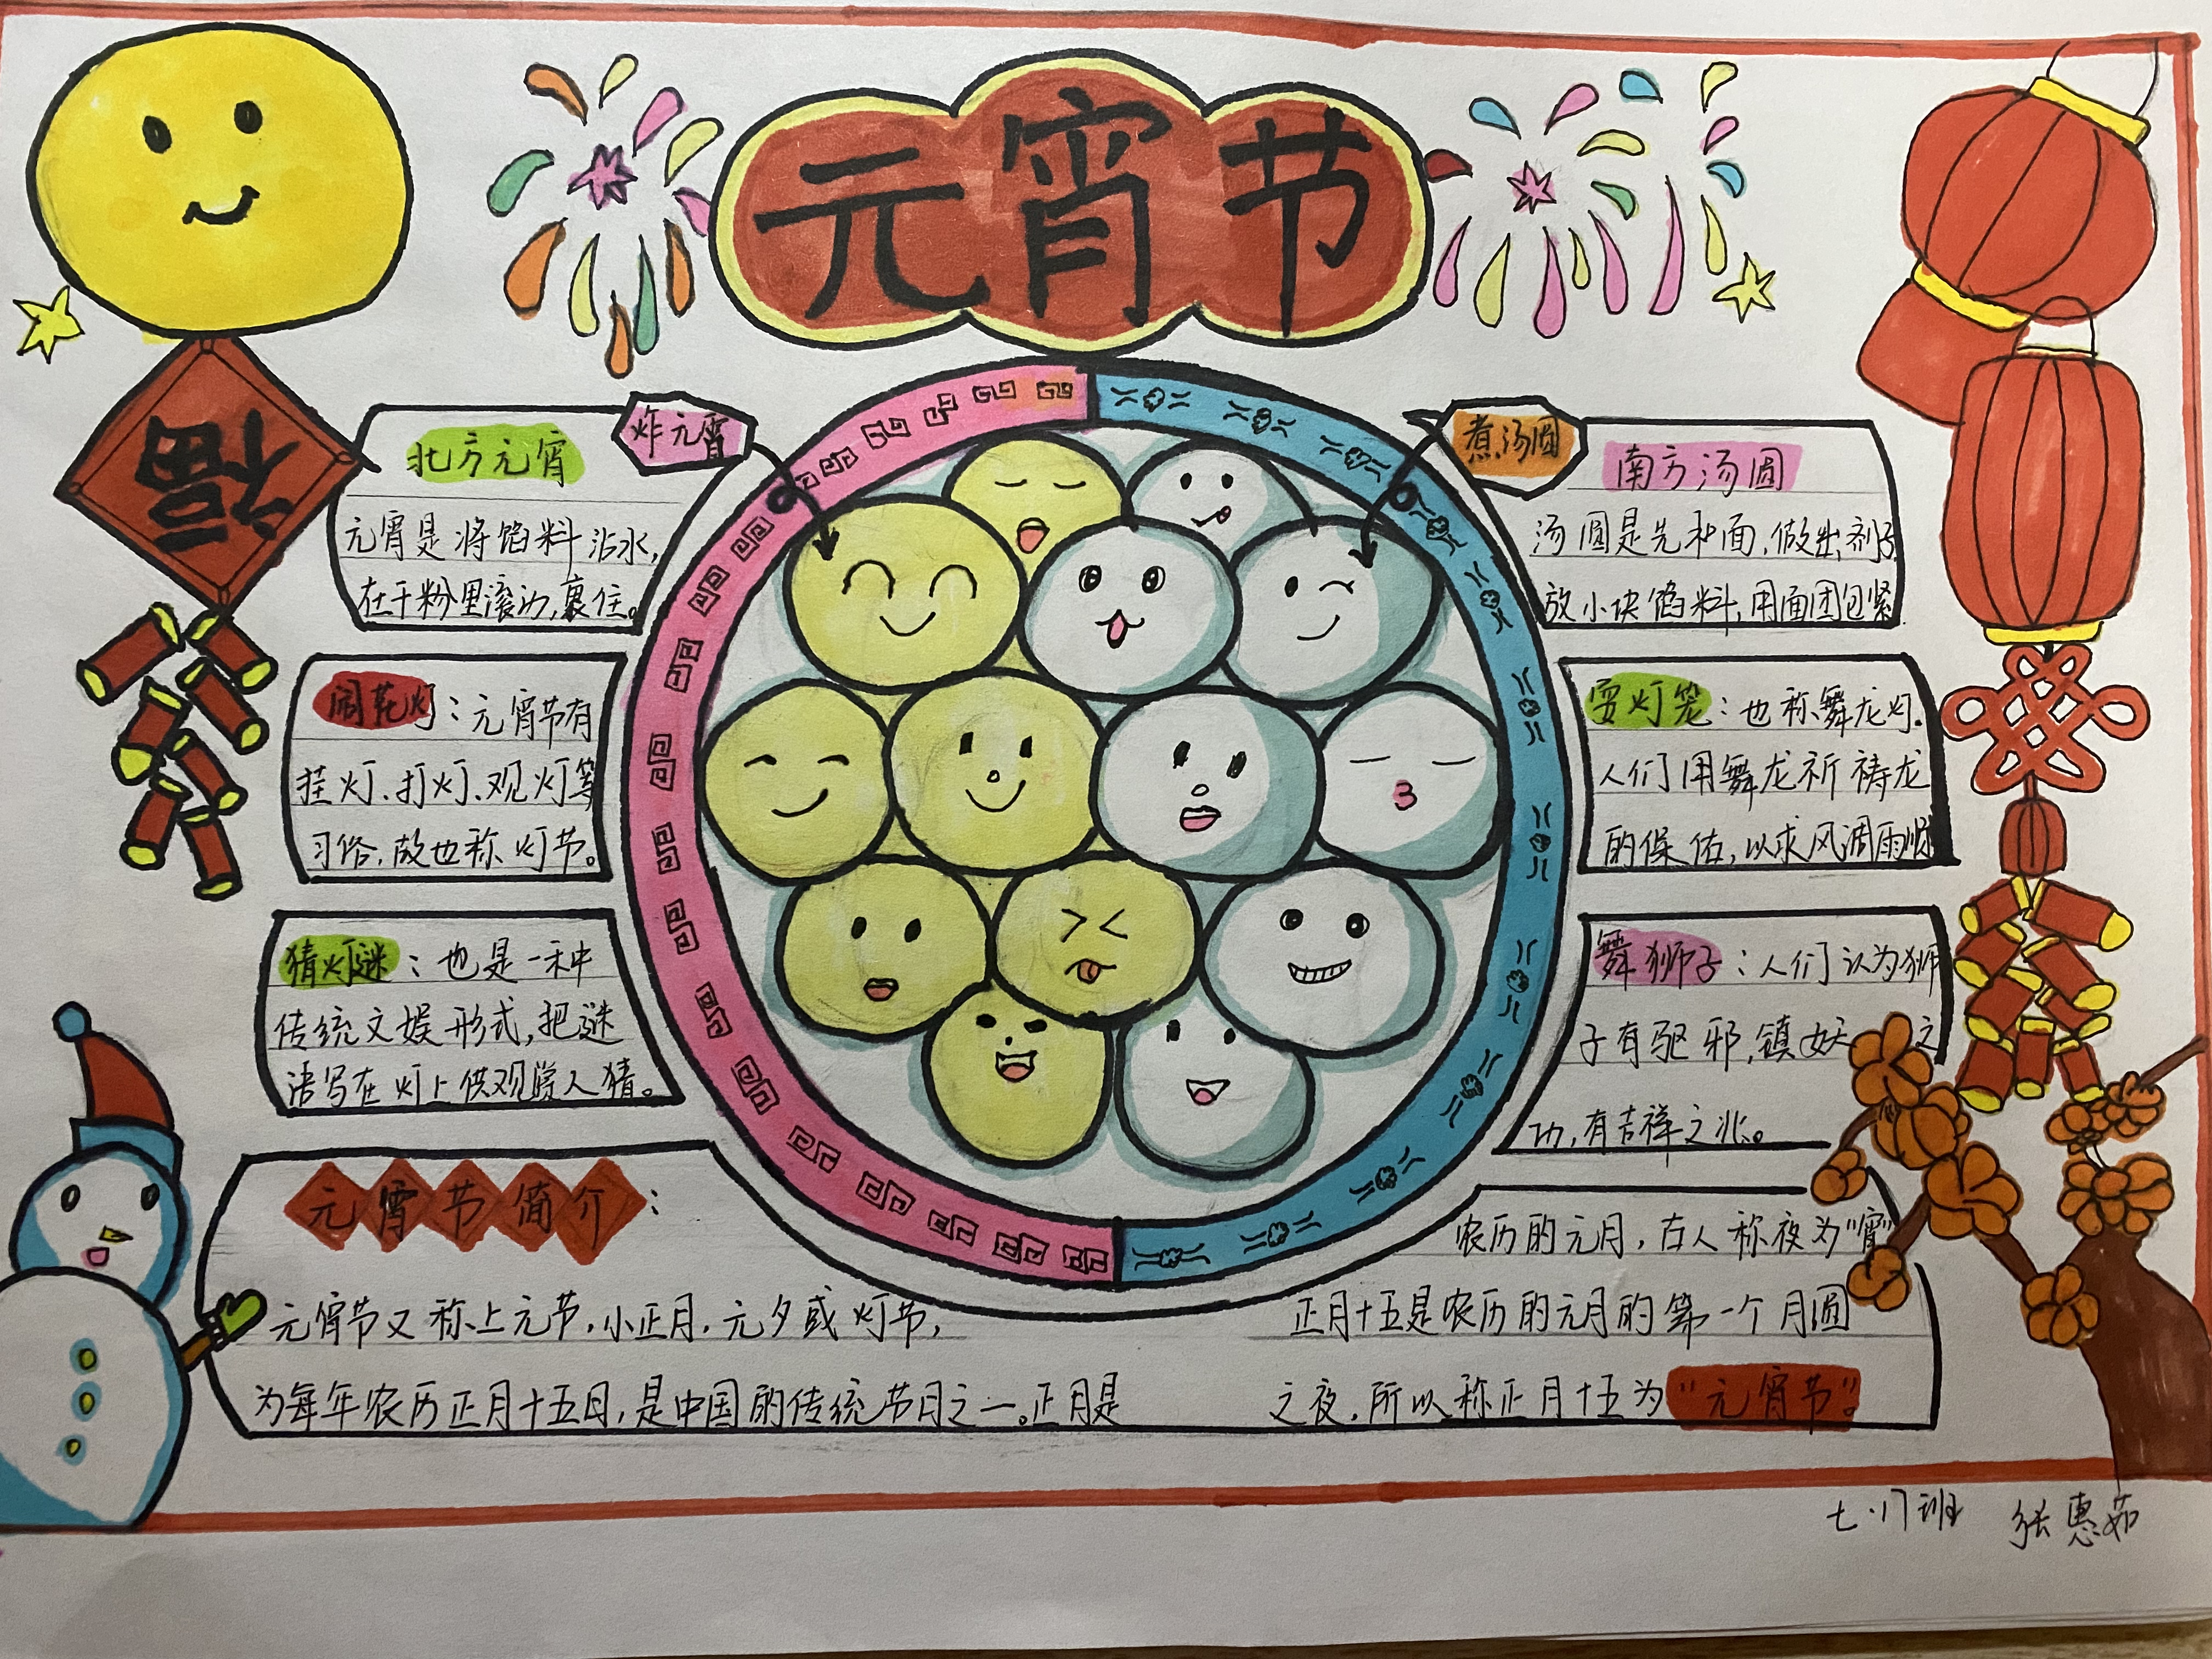 元宵节
福
炸元宵
煮汤圆
北方元宵
元宵是将馅料沾水,
在干粉里滚动,裹住。
闹花灯:元宵节有
挂灯、打灯、观灯等
习俗,故也称灯节。
猜灯谜:也是一种
传统文娱形式,把谜
语写在灯上供观赏人猜。
南方汤圆
汤圆是先和面,做出剂子
放小块馅料,用面团包紧
耍灯笼:也称舞龙灯.
人们用舞龙祈祷龙
的保佑,以求风调雨顺
舞狮子:人们认为狮
子有驱邪,镇妖之
功,有吉祥之兆。
元宵节简介:
元宵节又称上元节,小正月,元夕或灯节,
为每年农历正月十五日,是中国的传统节日之一。正月是
农历的元月,古人称夜为"宵"
正月十五是农历的元月的第一个月圆
之夜,所以称正月十五为"元宵节"。
七.17班 张惠茹